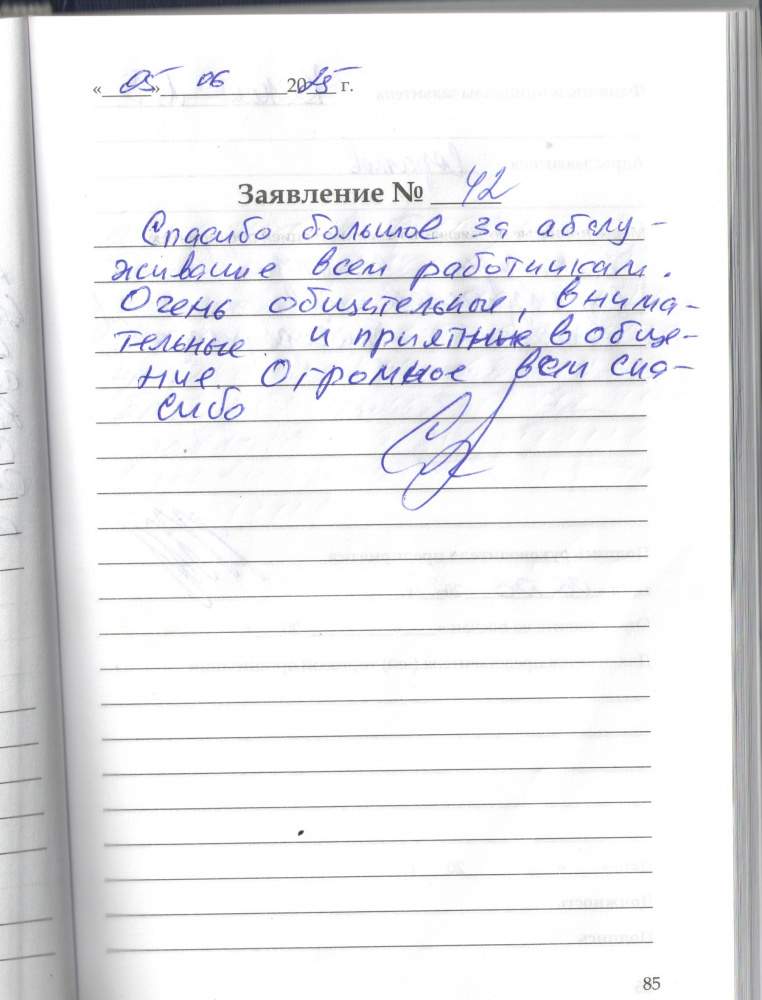 «05» 06 2025 г.
Заявление № 42
Спасибо большое за абслу-
живание всем работникам.
Очень общительные, внима-
тельные и приятные в обще-
ние. Огромное всем спа-
сибо
85